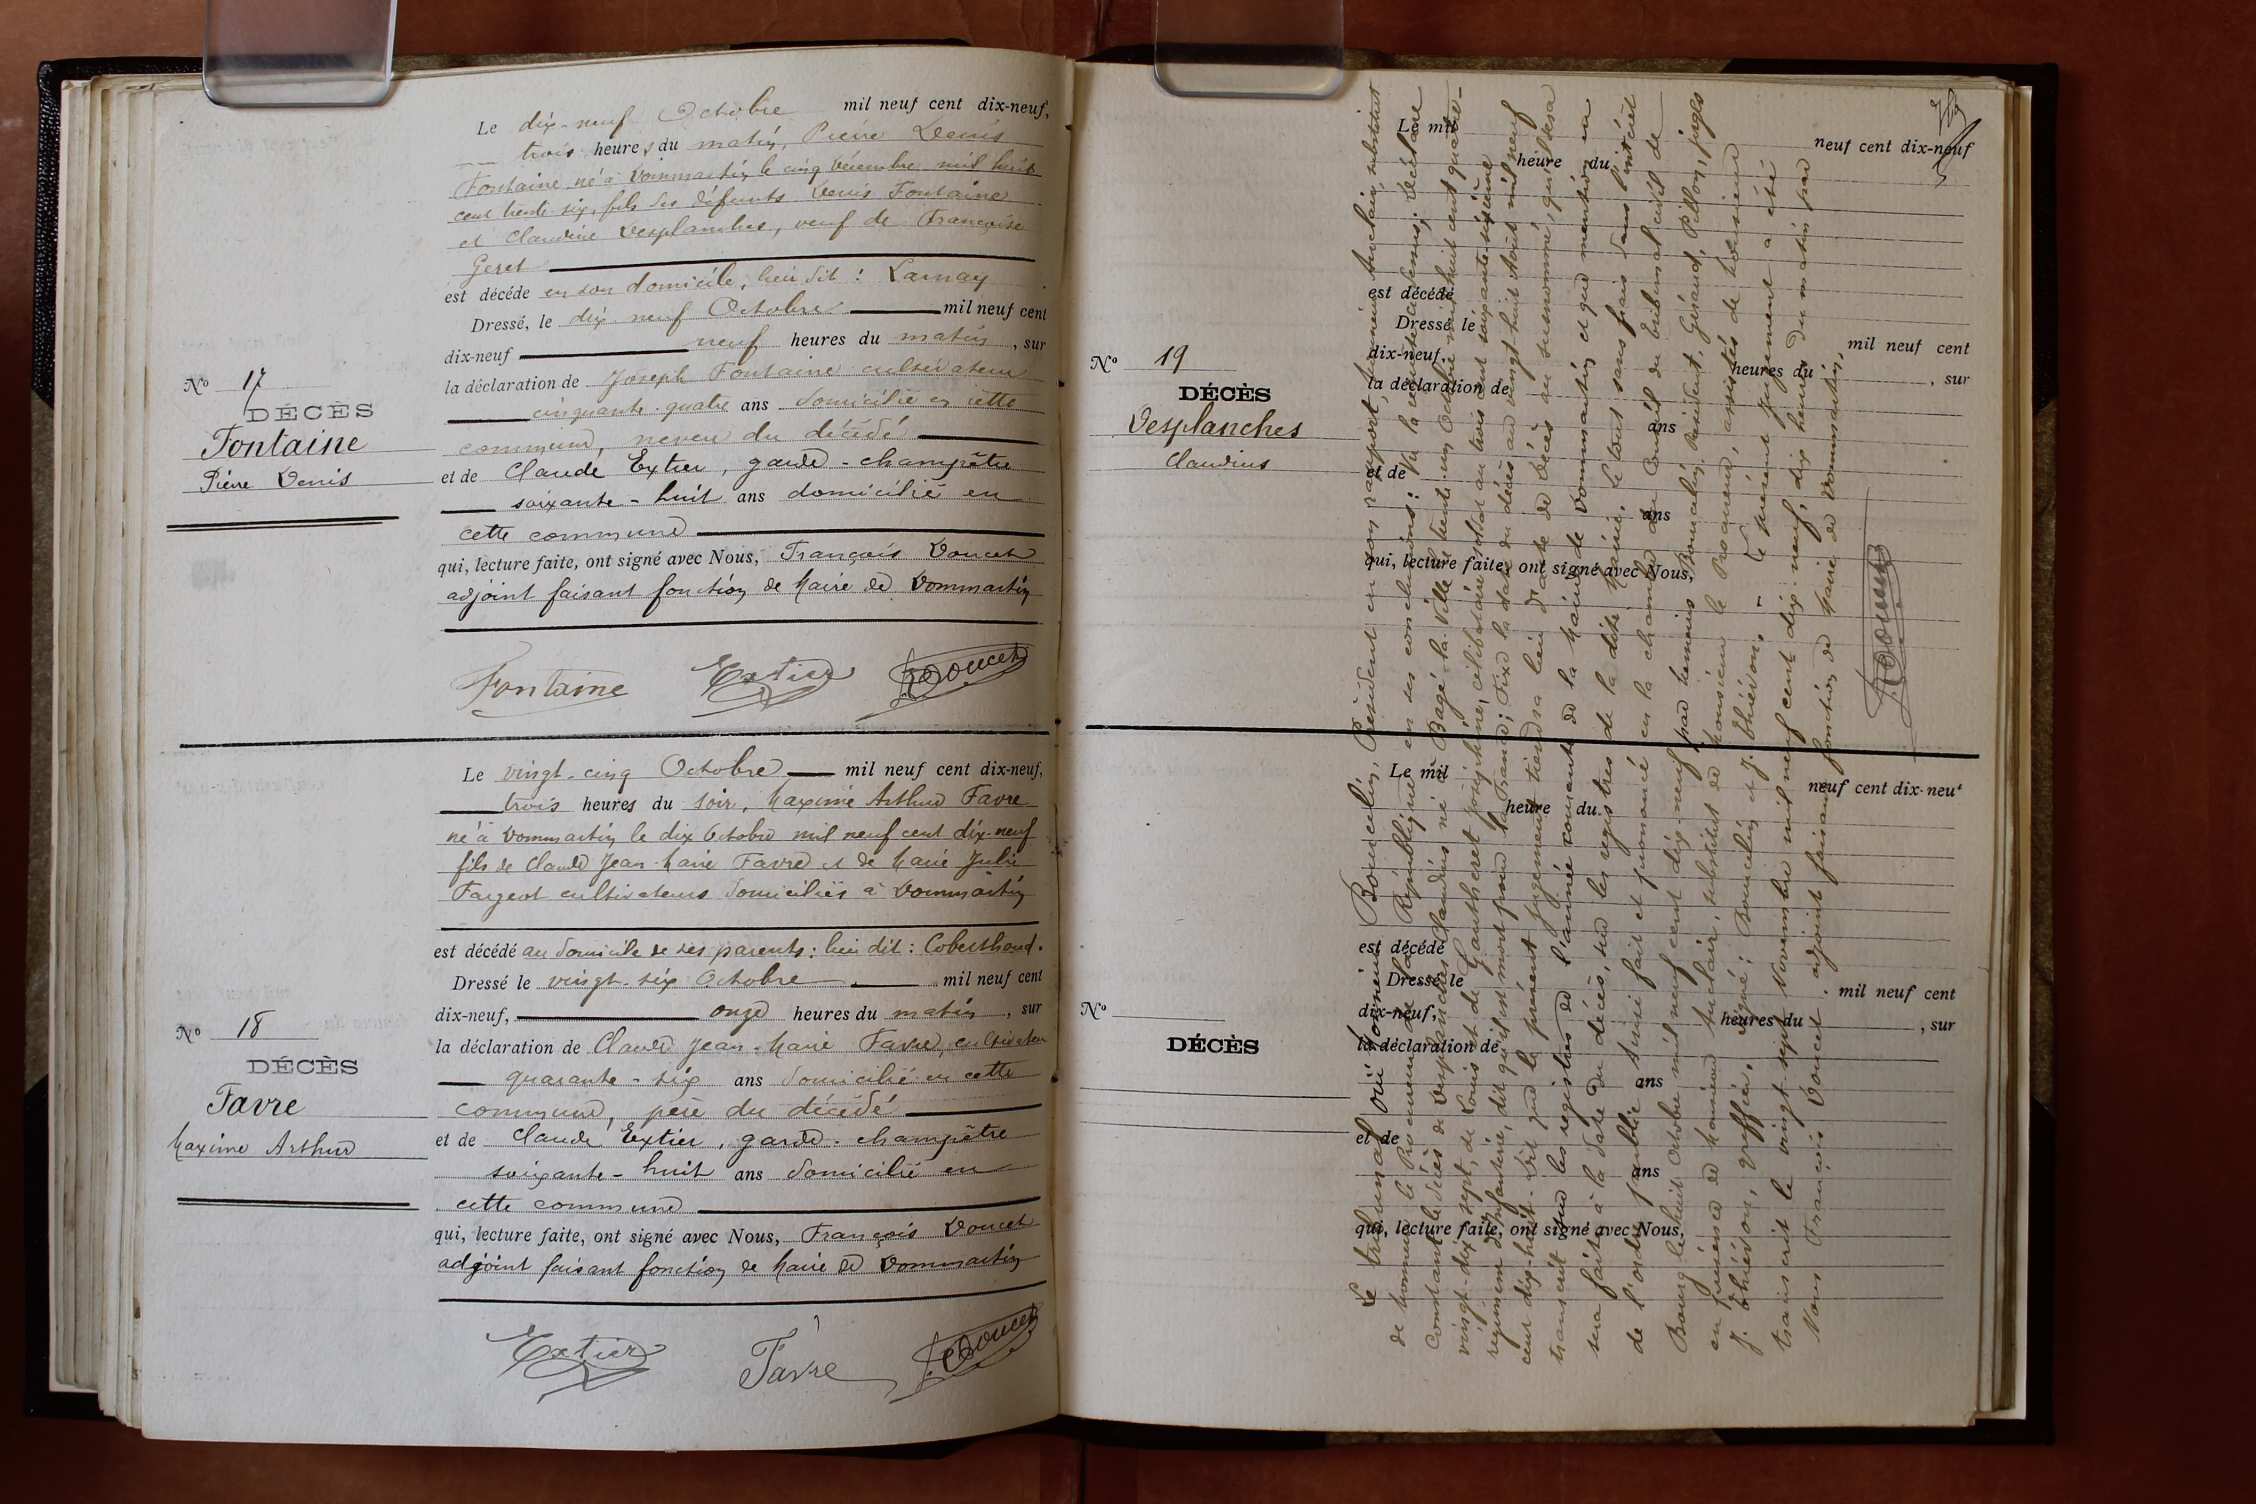 Le dix-neuf Octobre mil neuf cent dix-neuf,
trois heures du matin, Pierre Denis
Fontaine né à Dommartin le cinq décembre mil huit
cent trente-six, fils des défunts Denis Fontaine
et Claudine Desplanches, veuf de Françoise
Geret
est décédé en son domicile, lieu dit : Larnay
Dressé, le dix-neuf Octobre mil neuf cent
dix-neuf neuf heures du matin, sur
la déclaration de Joseph Fontaine cultivateur
cinquante-quatre ans domicilié en cette
commune, neveu du décédé
et de Claude Extier, garde-champêtre
soixante-huit ans domicilié en
cette commune
qui, lecture faite, ont signé avec Nous, François Doucet
adjoint faisant fonction de Maire de Dommartin
Fontaine Extier F. Doucet
No 17
DÉCÈS
Fontaine
Pierre Denis
Le vingt-cinq Octobre mil neuf cent dix-neuf,
trois heures du soir, Maxime Arthur Favre
né à Dommartin le dix Octobre mil neuf cent dix-neuf
fils de Claude Jean-Marie Favre et de Marie Julie
Fargeot cultivateurs domiciliés à Dommartin
est décédé au domicile de ses parents : lieu dit : Coberthoud.
Dressé le vingt-six Octobre mil neuf cent
dix-neuf, onze heures du matin, sur
la déclaration de Claude Jean-Marie Favre, cultivateur
quarante-six ans domicilié en cette
commune, père du décédé
et de Claude Extier, garde-champêtre
soixante-huit ans domicilié en
cette commune
qui, lecture faite, ont signé avec Nous, François Doucet
adjoint faisant fonction de Maire de Dommartin
Extier Favre F. Doucet
No 18
DÉCÈS
Favre
Maxime Arthur
No 19
DÉCÈS
Desplanches
Claudius
Le mil neuf cent dix-neuf
heure du
est décédé
Dressé le mil neuf cent
dix-neuf, heures du , sur
la déclaration de
ans
et de
ans
qui, lecture faite, ont signé avec Nous,
Le tribunal ouï Monsieur Boucelin, Président en son rapport, Monsieur Auclair, substitut
de Monsieur le Procureur de la République en ses conclusions : Vu la requête ci-dessus ; Déclare
constant le décès de Desplanches Claudius né à Bagé-la-Ville trente-un Octobre mil huit cent quatre-
vingt-dix-sept, de Louis et de Gautheret Joséphine, célibataire soldat au trois cent soixante-sixième
régiment d'infanterie, dit qu'il est mort pour la France ; Fixe la date du décès au vingt-huit Août mil neuf
cent dix-huit. Dit que le présent jugement tiendra lieu d'acte de décès au susnommé, qu'il sera
transcrit sur les registres de l'année courante de la Mairie de Dommartin et que mention en
sera faite à la date du décès, sur les registres de la dite Mairie, le tout sans frais dans l'intérêt
de l'ordre public. Ainsi fait et prononcé en la chambre du Conseil du tribunal civil de
Bourg le huit Octobre mil neuf cent dix-neuf par Messieurs Boucelin, Président, Géraud, Pillon, juges
en présence de Monsieur Auclair, substitut de Monsieur le Procureur, assistés de Monsieur
J. Thiévon, greffier. Signé : Boucelin et J. Thiévon. - Le présent jugement a été
transcrit le vingt-sept Novembre mil neuf cent dix-neuf, dix heures du matin par
Nous François Doucet adjoint faisant fonction de Maire de Dommartin,
F. Doucet
No
DÉCÈS
Le mil neuf cent dix-neuf
heure du
est décédé
Dressé le mil neuf cent
dix-neuf, heures du , sur
la déclaration de
ans
et de
ans
qui, lecture faite, ont signé avec Nous,